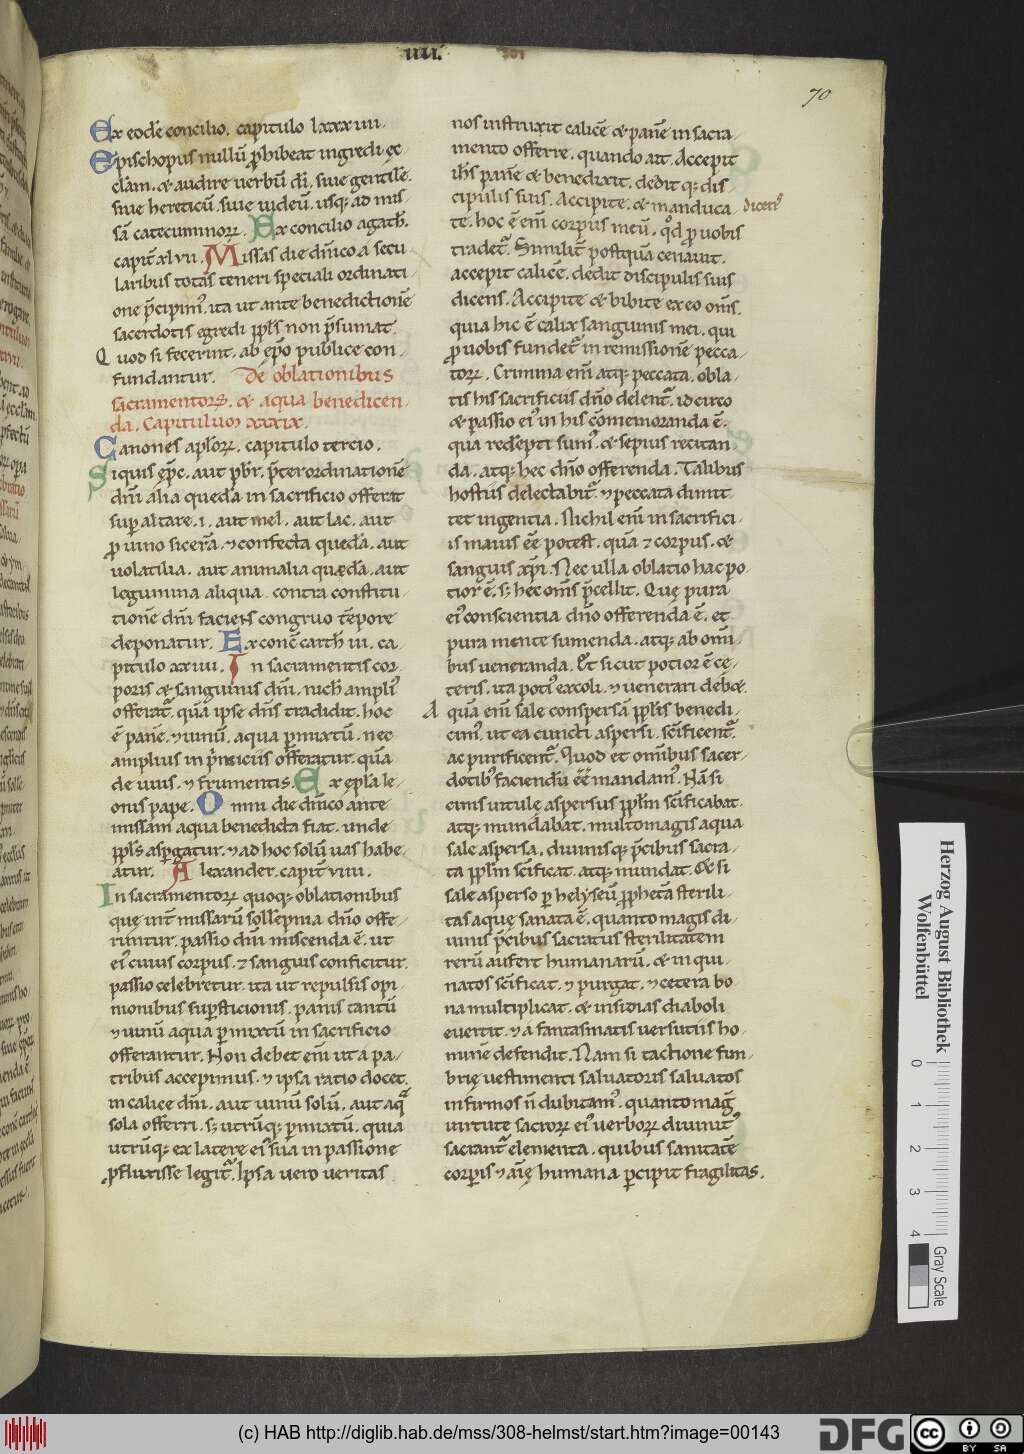 IIII.
70
Ex eodē concilio. capitulo lxxxiiii.
Epischopus nullū ꝓhibeat ingredi ęc
clam. & audire uerbū di. siue gentilē.
siue hereticū. siue iudeū. usq; ad mis
sā catecuminoꝝ. Ex concilio agath̄.
capit̄ xlvii. Missas die dn̄ico a secu
laribus totas teneri speciali ordinati
one p̄cipimꝰ. ita ut ante benedictionē
sacerdotis egredi ppl̄s non p̄sumat.
Quod si fecerint. ab ep̄o publice con
fundantur. De oblationibus
sacramentoꝝ. & aqua benedicen
da. Capitulum xxxix.
Canones apl̄oꝝ. capitulo tercio.
Siquis ep̄c. aut pb̄r. p̄ter ordinationē
dn̄i alia quedā in sacrificio offerat
sup̄ altare. i. aut mel. aut lac. aut
ꝓ uino sicerā. ⁊ confecta quedā. aut
uolatilia. aut animalia quędā. aut
legumina aliqua contra constitu
tionē dn̄i faciens congruo tēpore
deponatur. Ex conc̄ carth̄ iii. ca
pitulo xxiiii. In sacramentis cor
poris & sanguinis dn̄i. nich̄ ampliꝰ
offerat̄. quā ipse dn̄s tradidit. hoc
ē panē. ⁊ uinū. aqua ꝑmixtū. nec
amplius in p̄miciis offeratur. quā
de uuis. ⁊ frumentis. Ex epl̄a le
onis pape. Omni die dn̄ico ante
missam aqua benedicta fiat. unde
ppl̄s asꝑgatur. ⁊ ad hoc solū uas habe
atur. Alexander. capit̄ viiii.
In sacramentoꝝ quoq; oblationibus
quę int̄ missarū sollēpnia dn̄o offe
runtur. passio dn̄i miscenda ē. ut
eiꝰ cuius corpus. ⁊ sanguis conficitur.
passio celebretur. ita ut repulsis opi
nionibus sup̄sticionis. panis tantū
⁊ uinū aqua ꝑmixtū in sacrificio
offerantur. Non debet eni ut a pa
tribus accepimus. ⁊ ipsa ratio docet.
in calice dn̄i. aut uinū solū. aut aq̄
sola offerri. s; utrūq; ꝑmixtū. quia
utrūq; ex latere eiꝰ sua in passione
ꝓfluxisse legit̄. Ipsa uero ueritas
nos instruxit calicē & panē in sacra
mento offerre. quando ait. Accepit
ih̄s panē & benedixit. dedit q; dis
cipulis suis. Accipite. & manduca
dicens
te. hoc ē eni corpus meū. qd̄ ꝓ uobis
tradet̄. Similit̄ postquā cenauit.
accepit calicē. dedit discipulis suis
dicens. Accipite & bibite ex eo om̄s.
quia hic ē calix sanguinis mei. qui
ꝓ uobis fundet̄ in remissionē pecca
toꝝ. Crimina eni atq; peccata. obla
tis his sacrificiis dn̄o delent̄. idcirco
& passio eiꝰ in his cōmemoranda ē.
qua redēpti sumꝰ. & sepius recitan
da. atq; hec dn̄o offerenda. Talibus
hostiis delectabit̄. ⁊ peccata dimit
tet ingentia. Nichil eni in sacrifici
is maius eē potest. quā ⁊ corpus. &
sanguis xp̄i. Nec ulla oblatio hac po
tior ē. s; hec om̄s p̄cellit. Quę pura
ei conscientia dn̄o offerenda ē. et
pura mente sumenda. atq; ab omi
bus ueneranda. Et sicut potior ē ce
teris. ita potiꝰ excoli. ⁊ uenerari debe&.
Aquā eni sale conspersā ppl̄is benedi
cimꝰ. ut ea cuncti aspersi. scīficent̄.
ac purificent̄. Quod et omnibus sacer
dotibꝰ faciendū eē mandamꝰ. Nā si
cinis uitulę aspersus ppl̄m scīficabat.
atq; mundabat. multomagis aqua
sale aspersa. diuinisq; p̄cibus sacra
ta ppl̄m scīficat. atq; mundat. & si
sale asperso ꝑ helyseū ꝓphetā sterili
tas aquę sanata ē. quanto magis di
uinis p̄cibus sacratus sterilitatem
rerū aufert humanarū. & in qui
natos scīficat. ⁊ purgat. ⁊ cetera bo
na multiplicat. & insidias diaboli
euertit. ⁊ a fantasmatis uersutiis ho
minē defendit. Nam si tactione fim
brię uestimenti saluatoris saluatos
infirmos n̄ dubitamꝰ. quanto mag̉
uirtute sacroꝝ eiꝰ uerboꝝ diuinitꝰ
sacrant̄ elementa. quibus sanitatē
corꝑis ⁊ aīę humana ꝑcipit fragilitas.
Herzog August Bibliothek
Wolfenbüttel
0 1 2 3 4
Gray Scale
(c) HAB http://diglib.hab.de/mss/308-helmst/start.htm?image=00143
DFG
cc BY SA